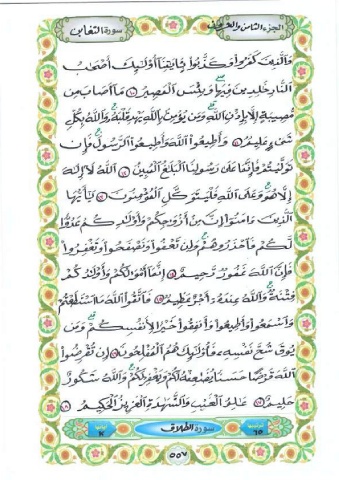 الجزء الثامن والعشرون سورة التغابن
وَالَّذِينَ كَفَرُوا وَكَذَّبُوا بِآيَاتِنَا أُولَٰئِكَ أَصْحَابُ
النَّارِ خَالِدِينَ فِيهَا وَبِئْسَ الْمَصِيرُ ١٠ مَا أَصَابَ مِن
مُّصِيبَةٍ إِلَّا بِإِذْنِ اللَّهِ وَمَن يُؤْمِن بِاللَّهِ يَهْدِ قَلْبَهُ وَاللَّهُ بِكُلِّ
شَيْءٍ عَلِيمٌ ١١ وَأَطِيعُوا اللَّهَ وَأَطِيعُوا الرَّسُولَ فَإِن
تَوَلَّيْتُمْ فَإِنَّمَا عَلَىٰ رَسُولِنَا الْبَلَاغُ الْمُبِينُ ١٢ اللَّهُ لَا إِلَٰهَ
إِلَّا هُوَ وَعَلَى اللَّهِ فَلْيَتَوَكَّلِ الْمُؤْمِنُونَ ١٣ يَا أَيُّهَا
الَّذِينَ ءَامَنُوا إِنَّ مِنْ أَزْوَاجِكُمْ وَأَوْلَادِكُمْ عَدُوًّا
لَّكُمْ فَاحْذَرُوهُمْ وَإِن تَعْفُوا وَتَصْفَحُوا وَتَغْفِرُوا
فَإِنَّ اللَّهَ غَفُورٌ رَّحِيمٌ ١٤ إِنَّمَا أَمْوَالُكُمْ وَأَوْلَادُكُمْ
فِتْنَةٌ وَاللَّهُ عِندَهُ أَجْرٌ عَظِيمٌ ١٥ فَاتَّقُوا اللَّهَ مَا اسْتَطَعْتُمْ
وَاسْمَعُوا وَأَطِيعُوا وَأَنفِقُوا خَيْرًا لِّأَنفُسِكُمْ وَمَن
يُوقَ شُحَّ نَفْسِهِ فَأُولَٰئِكَ هُمُ الْمُفْلِحُونَ ١٦ إِن تُقْرِضُوا
اللَّهَ قَرْضًا حَسَنًا يُضَاعِفْهُ لَكُمْ وَيَغْفِرْ لَكُمْ وَاللَّهُ شَكُورٌ
حَلِيمٌ ١٧ عَالِمُ الْغَيْبِ وَالشَّهَادَةِ الْعَزِيزُ الْحَكِيمُ ١٨
٦٥ سورة الطلاق
٥٥٧